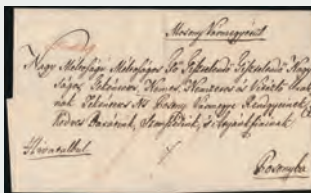 Mosony Vármegyéből
Nagy Méltóságú Méltóságos Fő Tisztelendő Tisztelendő Nagy
Ságos, Tekéntetes, Nemes, Nemzetes és Vitézlő Urak
nak Tekéntetes Ns Posony Vármegye Rendjeinek
Kedves Barátink, és Atyánkfiainak
Hivatalbul
Posonyba